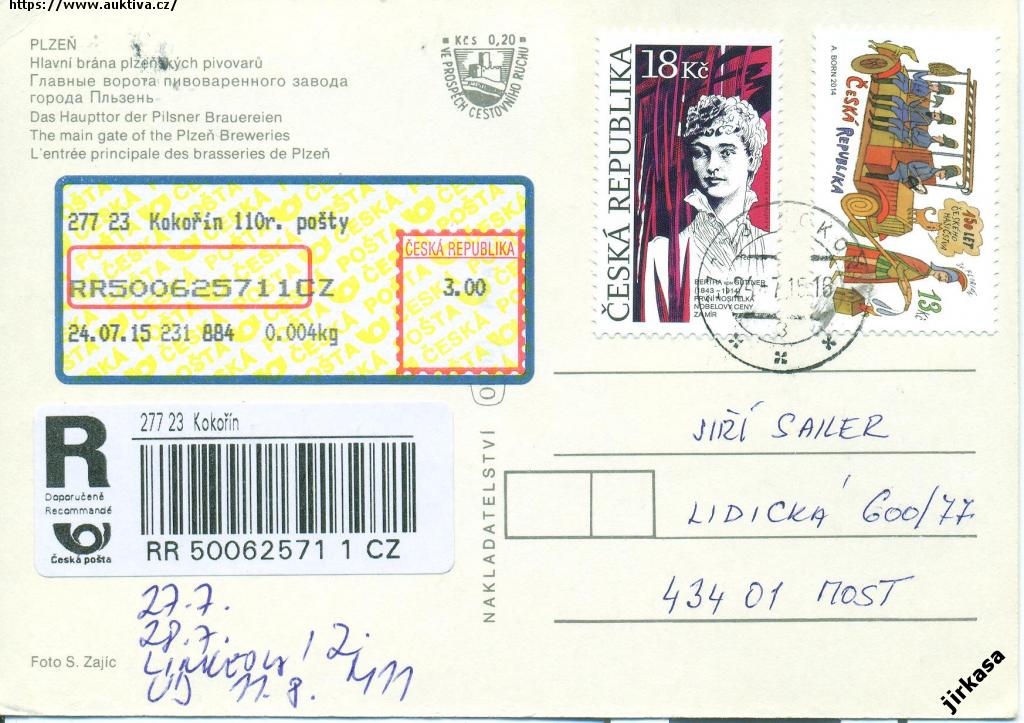 https://www.auktiva.cz/
PLZEŇ
Hlavní brána plzeňských pivovarů
Главные ворота пивоваренного завода
города Пльзень
Das Haupttor der Pilsner Brauereien
The main gate of the Plzeň Breweries
L'entrée principale des brasseries de Plzeň
Kčs 0,20
VE PROSPĚCH CESTOVNÍHO RUCHU
18 Kč
ČESKÁ REPUBLIKA
BERTHA von SUTTNER
(1843 - 1914)
PRVNÍ NOSITELKA
NOBELOVY CENY
ZA MÍR
A. BORN 2014
ČESKÁ REPUBLIKA
150 LET
ČESKÉHO
HASIČSTVA
13 Kč
7.15.16
3
277 23 Kokořín 110r. pošty
ČESKÁ REPUBLIKA
RR500625711CZ
3.00
24.07.15 231 884 0.004kg
ČESKÁ POŠTA
R
Doporučeně
Recommandé
Česká pošta
277 23 Kokořín
RR 50062571 1 CZ
NAKLADATELSTVÍ
JIŘÍ SAILER
LIDICKÁ 600/77
434 01 MOST
27.7.
28.7.
11.8.
Foto S. Zajíc
jirkasa